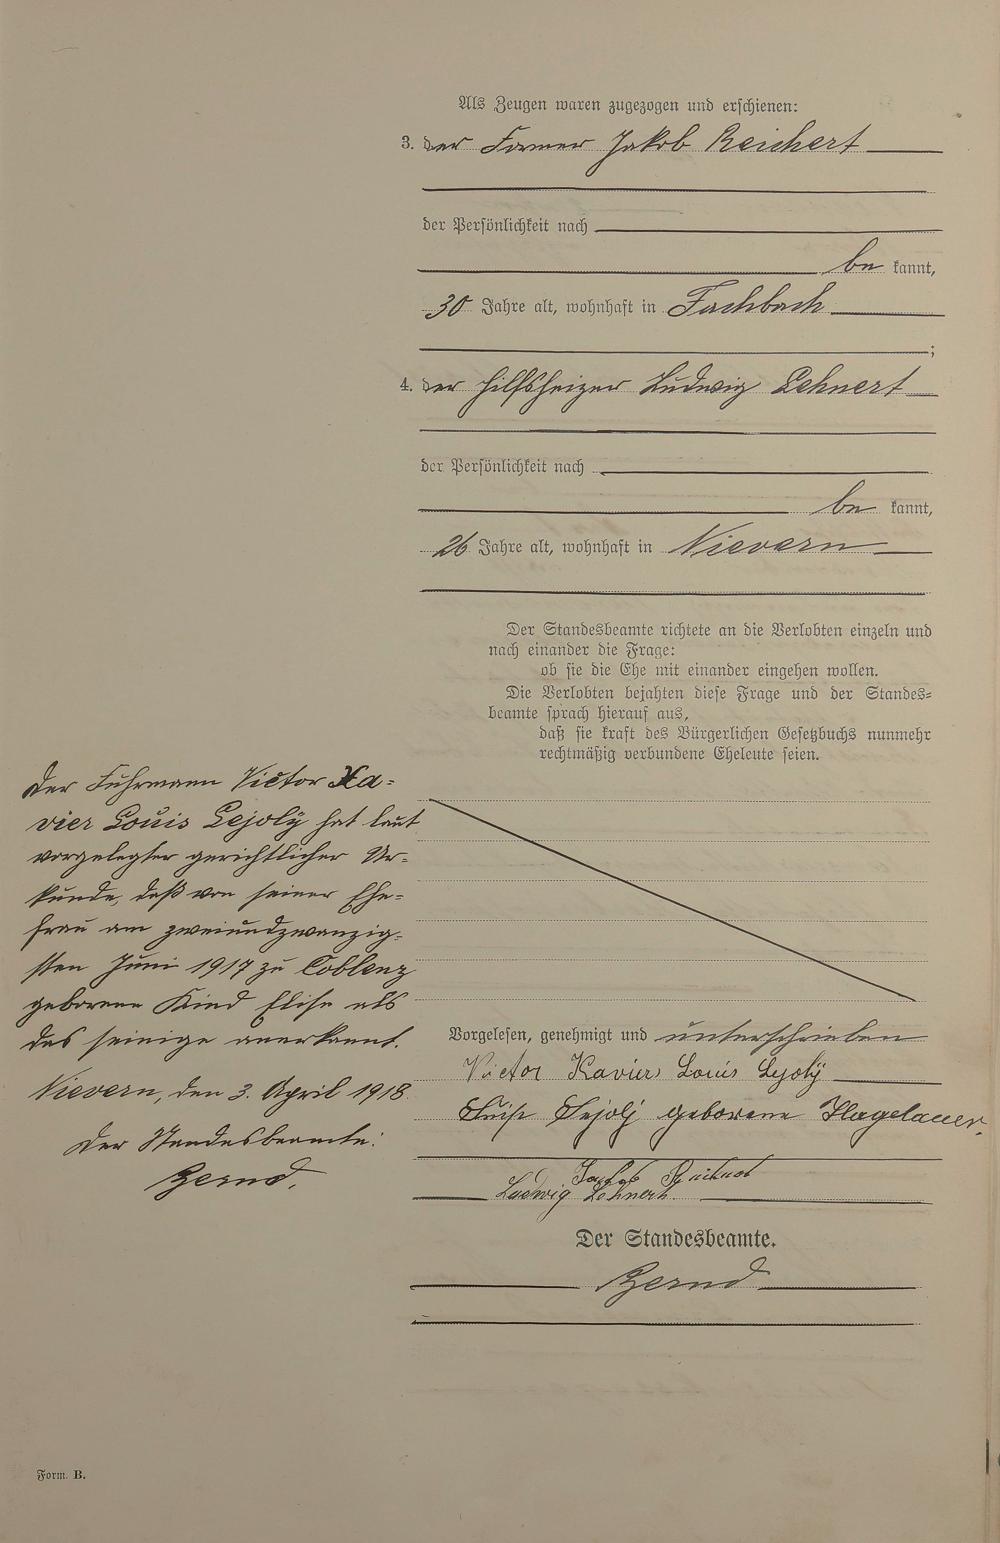 Als Zeugen waren zugezogen und erschienen:
3. der Former Jakob Reichert
der Persönlichkeit nach
be kannt,
30 Jahre alt, wohnhaft in Fachbach
;
4. der Hilfsheizer Ludwig Lehnert
der Persönlichkeit nach
be kannt,
26 Jahre alt, wohnhaft in Nievern
Der Standesbeamte richtete an die Verlobten einzeln und
nach einander die Frage:
ob sie die Ehe mit einander eingehen wollen.
Die Verlobten bejahten diese Frage und der Standes=
beamte sprach hierauf aus,
daß sie kraft des Bürgerlichen Gesetzbuchs nunmehr
rechtmäßig verbundene Eheleute seien.
Der Fuhrmann Victor Xa=
vier Louis Lejolÿ hat laut
vorgelegter gerichtlicher Ur=
kunde, daß von seiner Ehe=
frau am zweiundzwanzig=
sten Juni 1917 zu Coblenz
geborene Kind Elise als
das seinige anerkannt.
Nievern, den 3. April 1918.
Der Standesbeamte:
Bernd.
Vorgelesen, genehmigt und unterschrieben
Victor Xavier Louis Lejolÿ
Luise Lejolj geborene Hagelauer.
Jakob Reichert
Ludwig Lehnert.
Der Standesbeamte.
Bernd
Form. B.